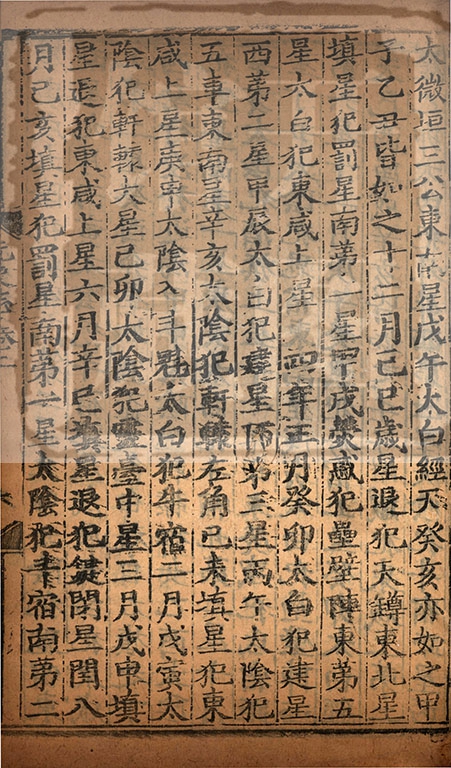 太微垣三公東南星戊午太白經天癸亥亦如之甲
子乙丑皆如之十二月己巳歲星退犯天罇東北星
填星犯罰星南第一星甲戌熒惑犯壘壁陣東第五
星太白犯東咸上星 四年正月癸卯太白犯建星
西第二星甲辰太白犯建星西第三星丙午太陰犯
五車東南星辛亥太陰犯軒轅左角己未填星犯東
咸上星庚申太陰入斗魁太白犯牛宿二月戊寅太
陰犯軒轅大星己卯太陰犯靈臺中星三月戊申填
星退犯東咸上星六月辛巳填星退犯鍵閉星閏八
月己亥填星犯罰星南第一星太陰犯斗宿南第二